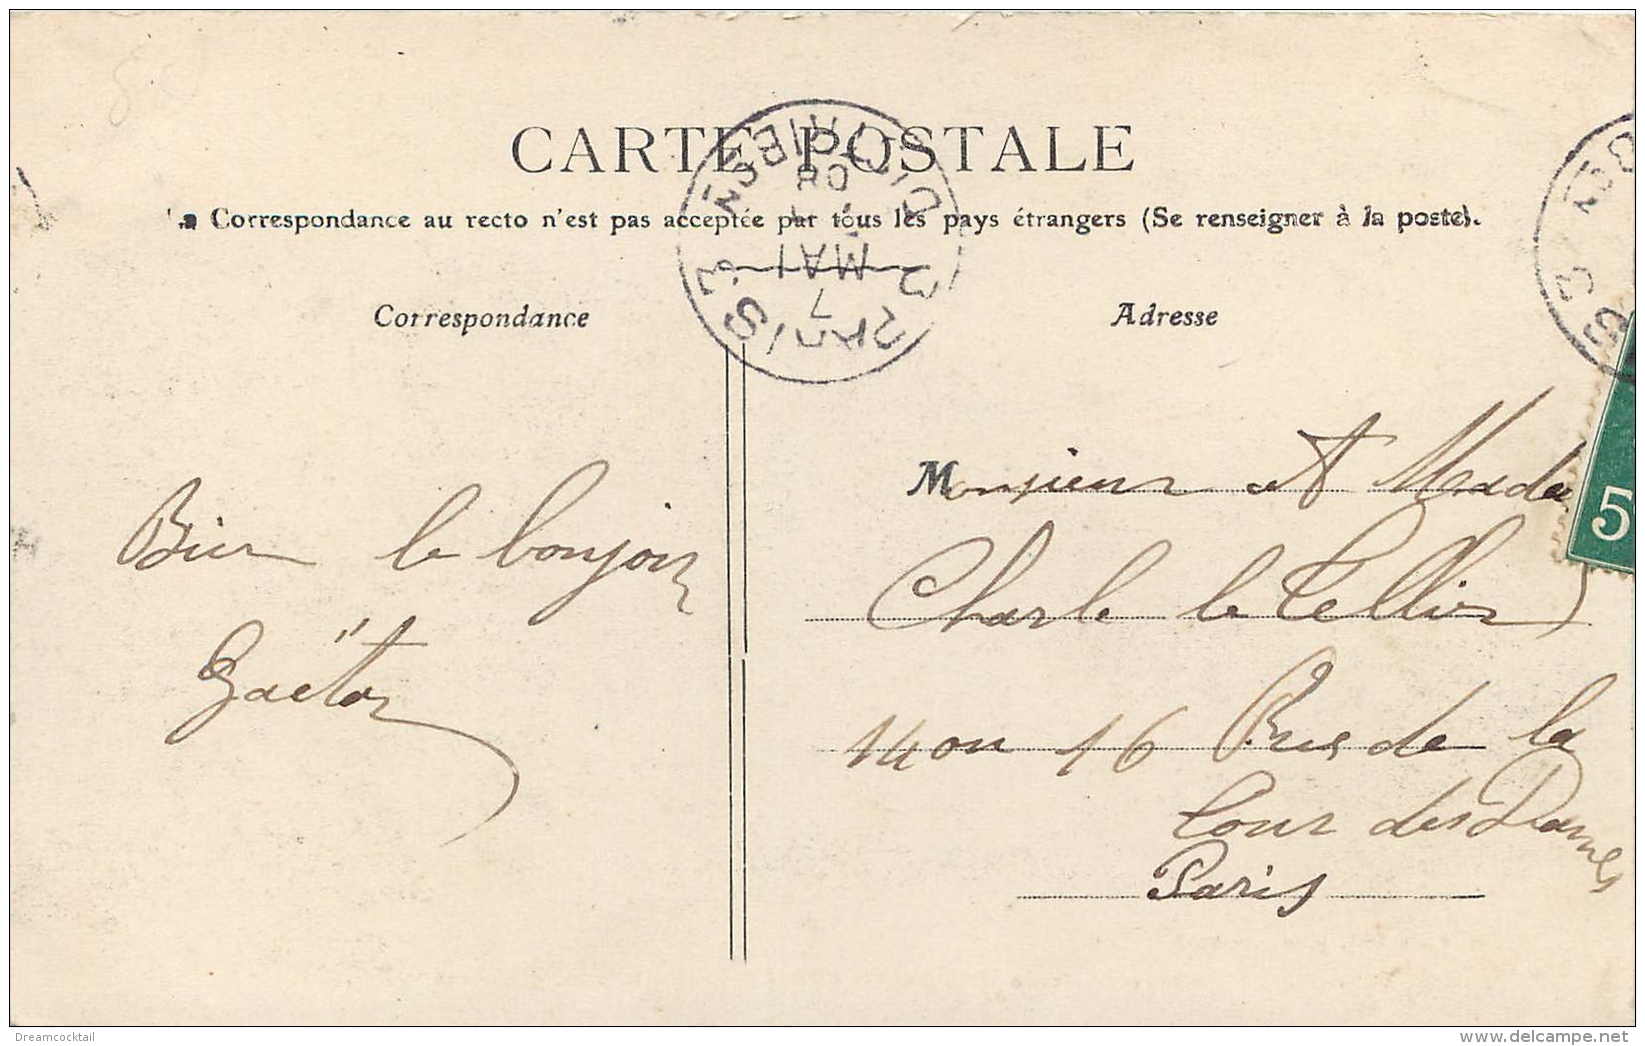 CARTE POSTALE
La Correspondance au recto n'est pas acceptée par tous les pays étrangers (Se renseigner à la poste).
Correspondance
Adresse
Bien le bonjour
Gaëtan
Monsieur et Madame
Charle le Tellier
14 ou 16 Rue de la
Tour des Dames
Paris
7
MAI
08
5
Dreamcocktail
delcampe.net